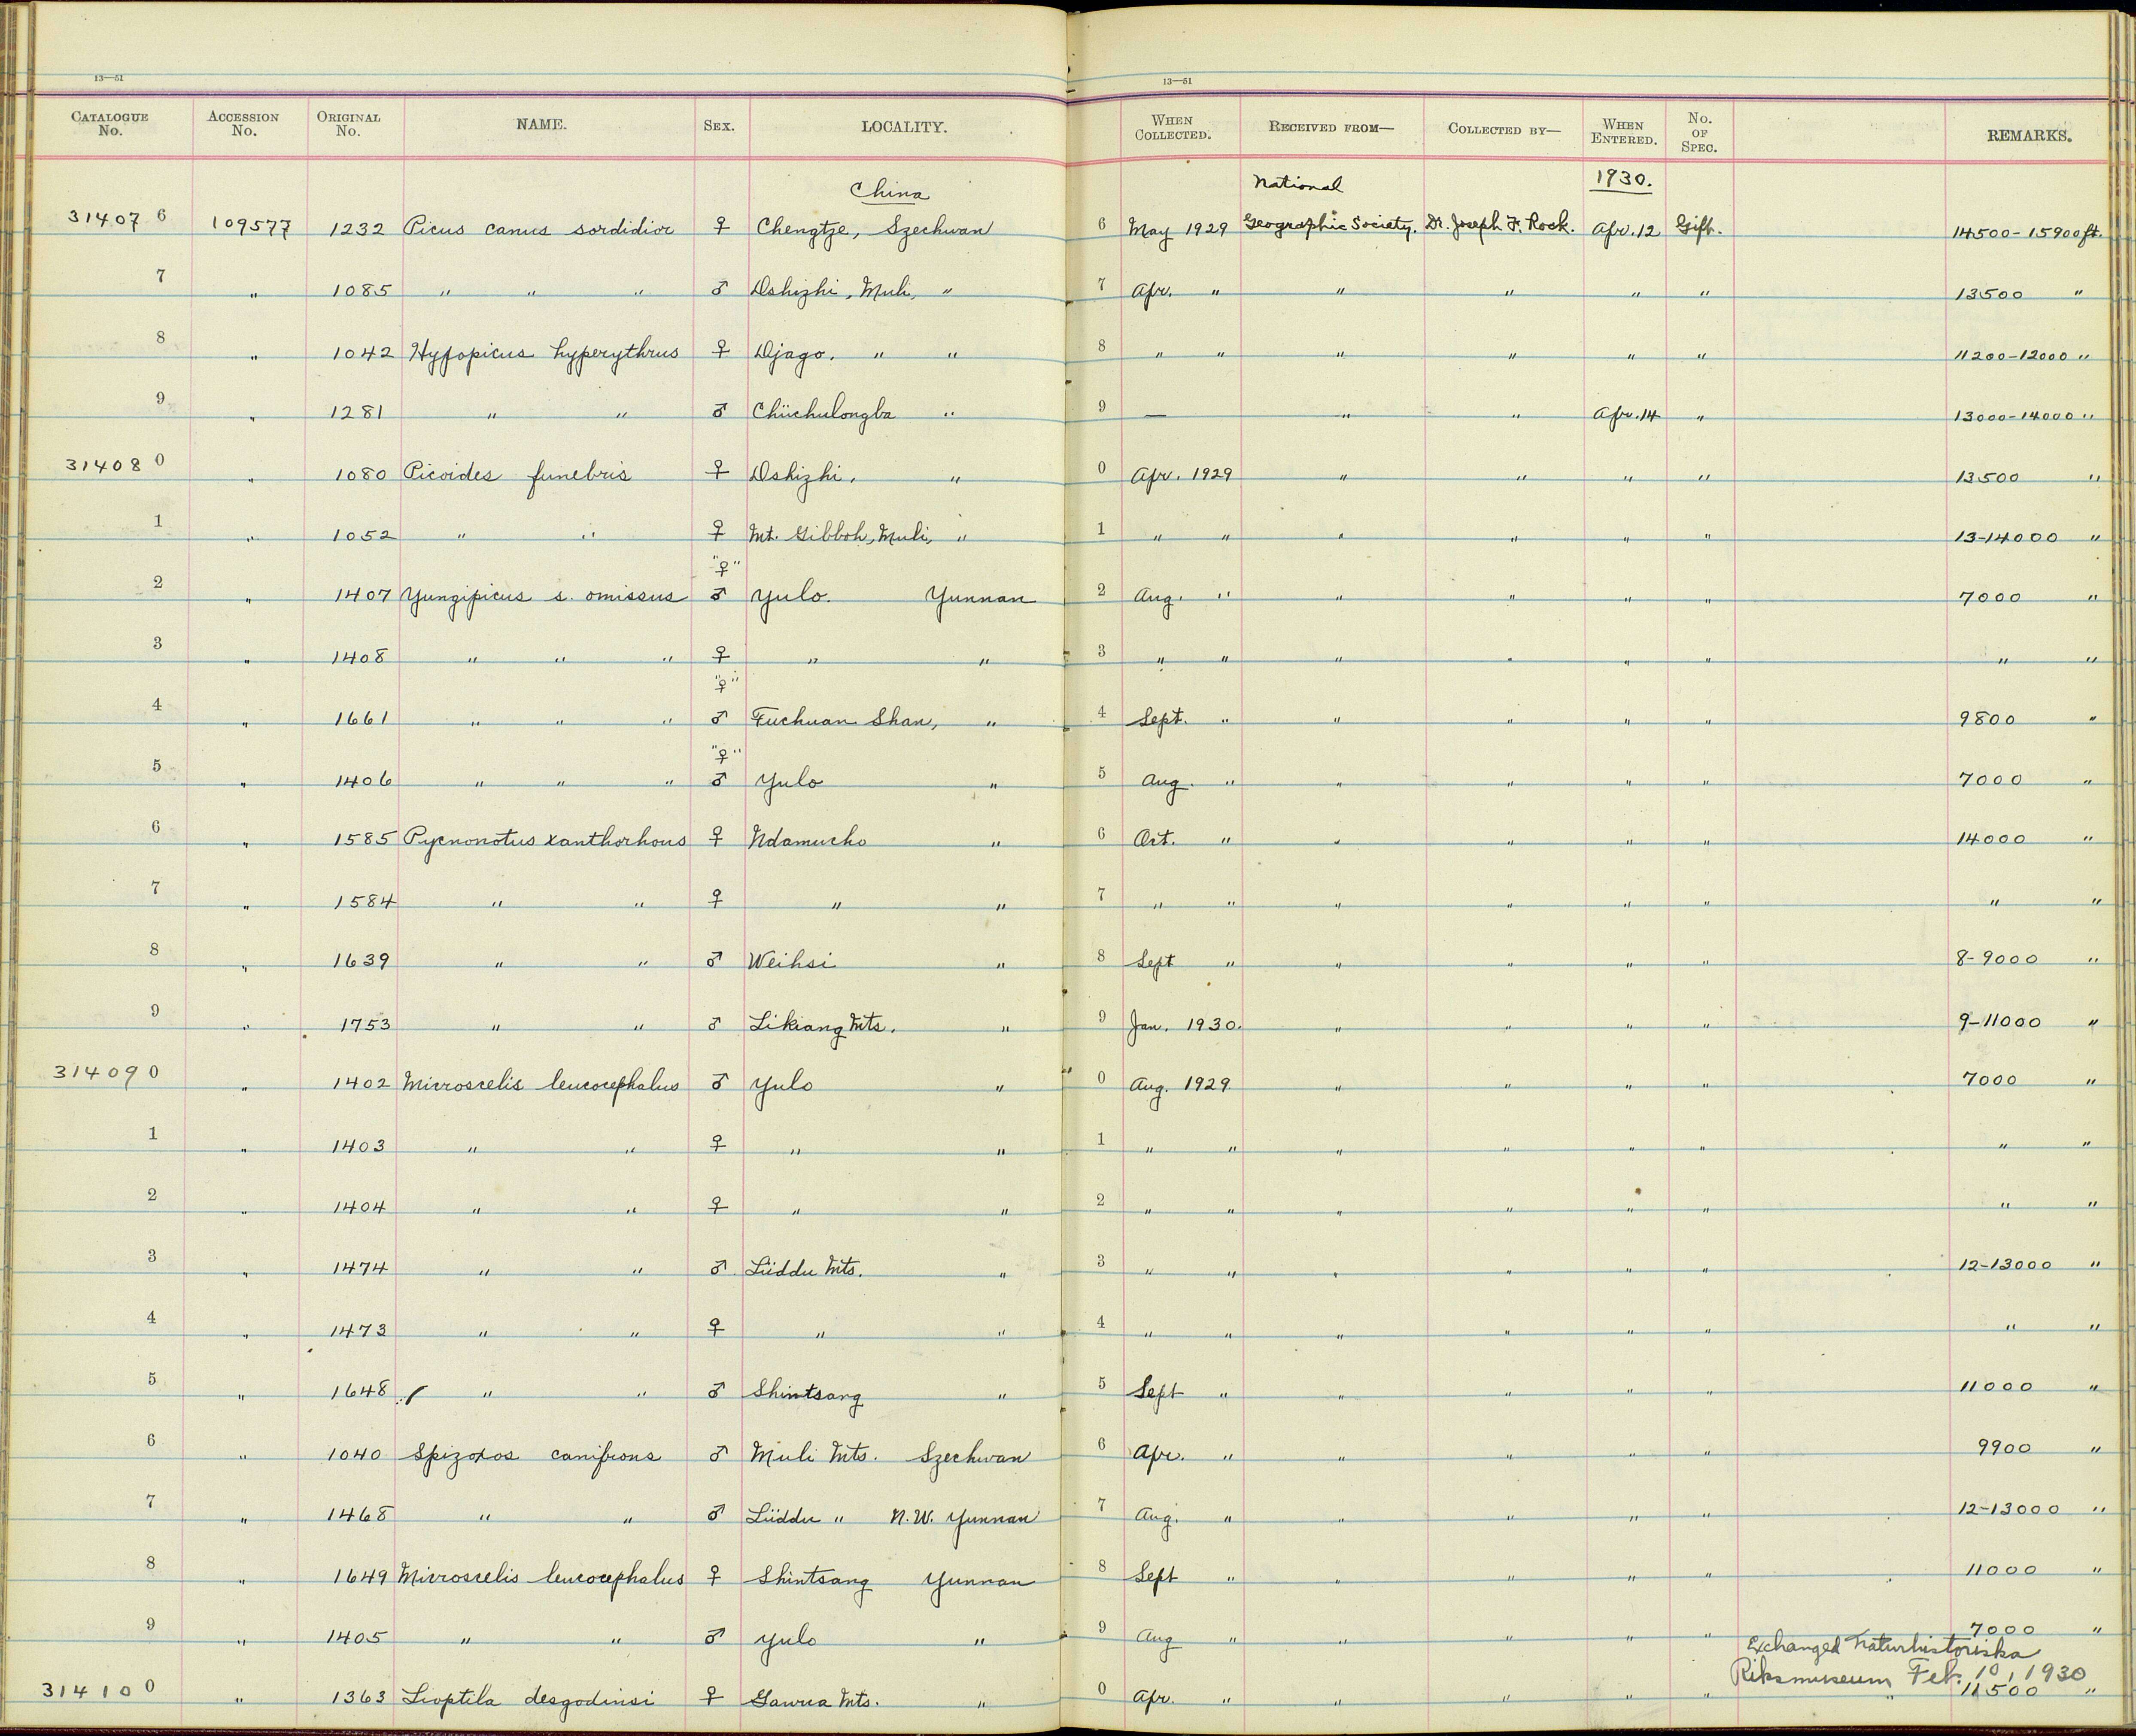 13—51 13—51
CATALOGUE No. ACCESSION No. ORIGINAL No. NAME. SEX. LOCALITY. WHEN COLLECTED. RECEIVED FROM— COLLECTED BY— WHEN ENTERED. No. OF SPEC. REMARKS.
China National 1930.
314076 109577 1232 Picus canus sordidior ♀ Chengtze, Szechwan 6 May 1929 Geographic Society. Dr. Joseph F. Rock. Apr. 12 Gift. 14500-15900 ft.
7 " 1085 " " " ♂ Dshizhi, Muli, " 7 Apr. " " " " " 13500 "
8 " 1042 Hypopicus hyperythrus ♀ Djago. " " 8 " " " " " " 11200-12000 "
9 " 1281 " " ♂ Chüchulongba " 9 — " " Apr. 14 " 13000-14000 "
314080 " 1080 Picoides funebris ♀ Dshizhi, " 0 Apr. 1929 " " " " 13500 "
1 " 1052 " " ♀ Mt. Gibboh, Muli, " 1 " " " " " " 13-14000 "
"♀"
2 " 1407 Yungipicus s. omissus ♂ Yulo. Yunnan 2 Aug. " " " " " 7000 "
3 " 1408 " " " ♀ " " 3 " " " " " " " "
"♀"
4 " 1661 " " " ♂ Fuchuan Shan, " 4 Sept. " " " " " 9800 "
"♀"
5 " 1406 " " " ♂ Yulo " 5 Aug. " " " " " 7000 "
6 " 1585 Pycnonotus xanthorhous ♀ Ndamucho " 6 Oct. " " " " " 14000 "
7 " 1584 " " ♀ " " 7 " " " " " " " "
8 " 1639 " " ♂ Weihsi " 8 Sept " " " " " 8-9000 "
9 " 1753 " " ♂ Likiang Mts. " 9 Jan. 1930. " " " " 9-11000 "
314090 " 1402 Microscelis leucocephalus ♂ Yulo " 0 Aug. 1929 " " " " 7000 "
1 " 1403 " " ♀ " " 1 " " " " " " " "
2 " 1404 " " ♀ " " 2 " " " " " " " "
3 " 1474 " " ♂ Lüddu Mts. " 3 " " " " " " 12-13000 "
4 " 1473 " " ♀ " " 4 " " " " " " " "
5 " 1648 " " ♂ Shintsang " 5 Sept " " " " " 11000 "
6 " 1040 Spizoxos canifrons ♂ Muli Mts. Szechwan 6 Apr. " " " " " 9900 "
7 " 1468 " " ♂ Lüddu " N.W. Yunnan 7 Aug. " " " " " 12-13000 "
8 " 1649 Microscelis leucocephalus ♀ Shintsang Yunnan 8 Sept " " " " " 11000 "
9 " 1405 " " ♂ Yulo " 9 Aug " " " " " 7000 "
Exchanged Naturhistoriska
Riksmuseum Feb. 10, 1930
314100 " 1363 Lioptila desgodinsi ♀ Gawra Mts. " 0 Apr. " " " " " " 11500 "